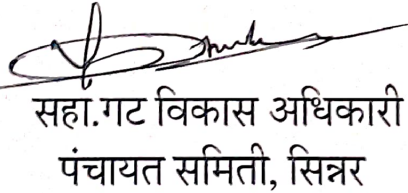 सहा.गट विकास अधिकारी
पंचायत समिती, सिन्नर